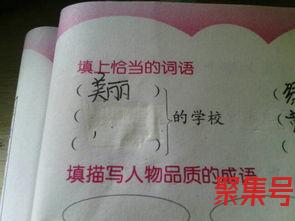 填上恰当的词语
(美丽)
( ) 的学校
( , )
填描写人物品质的成语
聚集号